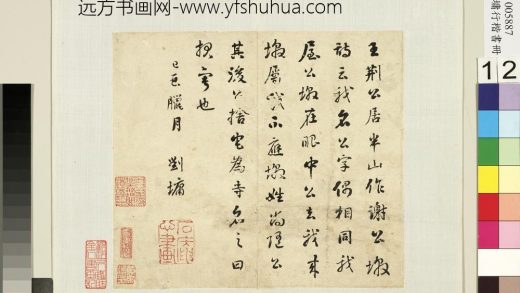 远方书画网-www.yfshuhua.com
005887
墉行楷書冊
12
王荆公居半山作謝公墩
詩云我名公字偶相同我
屋公墩在眼中公去我來
墩屬我不應墩姓尚隨公
其後公捨宅為寺名之曰
報寧也
己亥臘月 劉墉